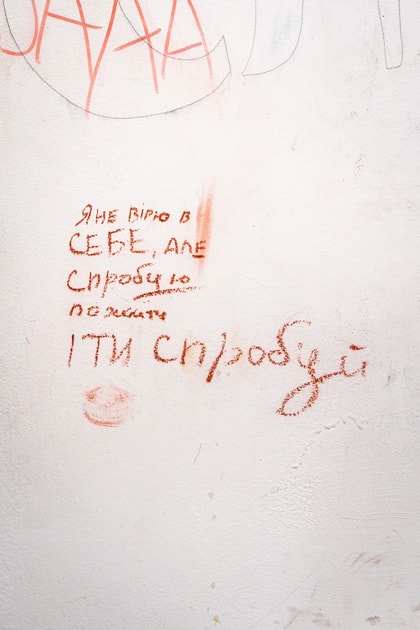 Я НЕ ВіРЮ В
СЕБЕ, АЛЕ
Спробую
пожити
І ТИ Спробуй